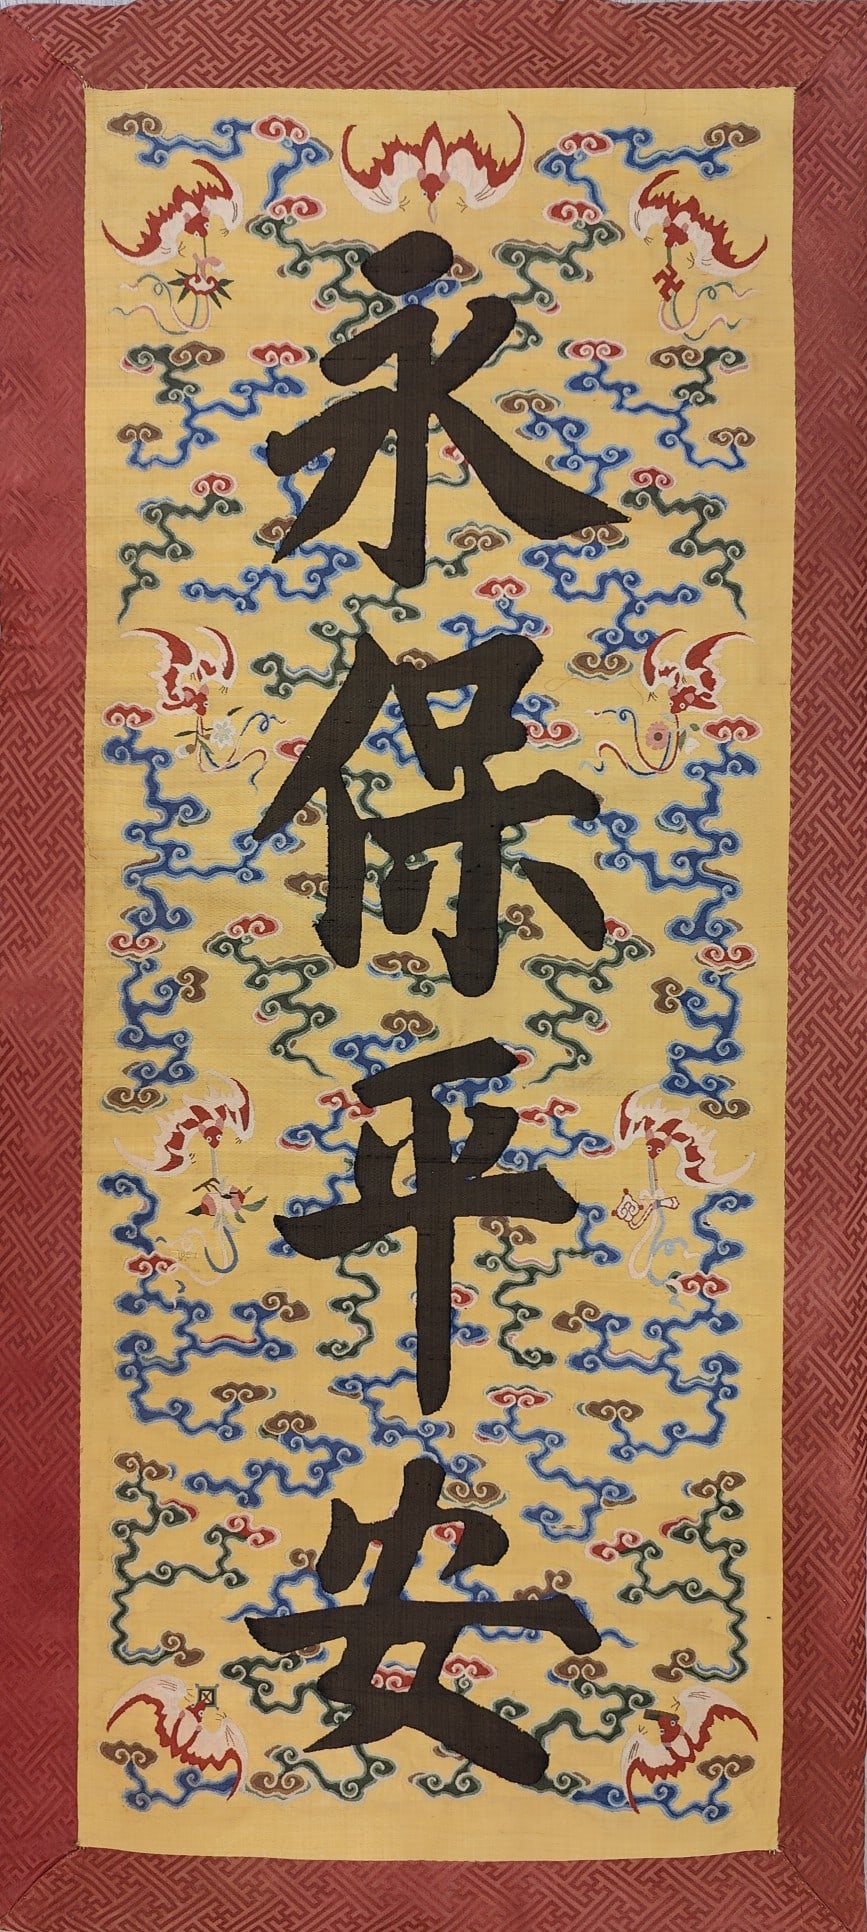 永保平安